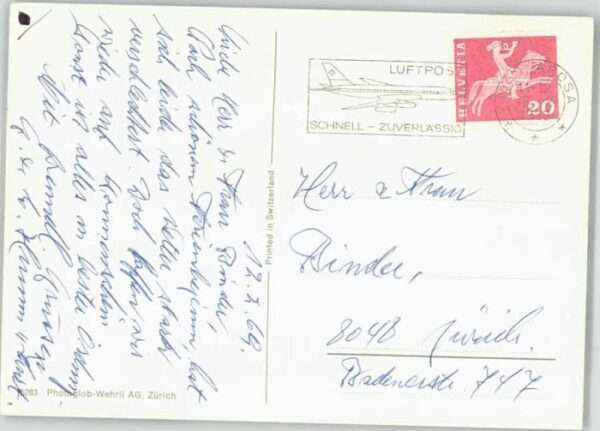 12. 7. 69.
Liebe Herr u. Frau Binder,
Nach schönem Ferienbeginn hat
sich leider das Wetter stark
verschlechtert. Doch hoffen wir
wieder auf Sonnenschein
sonst ist alles in bester Ordng.
Mit freundl. Grüssen
LUFTPOS
SCHNELL – ZUVERLÄSSIG
HELVETIA
20
ROSA
Herr & Frau
Binder,
8048 Zürich.
Badenerstr. 747
Printed in Switzerland
Photoglob-Wehrli AG, Zürich